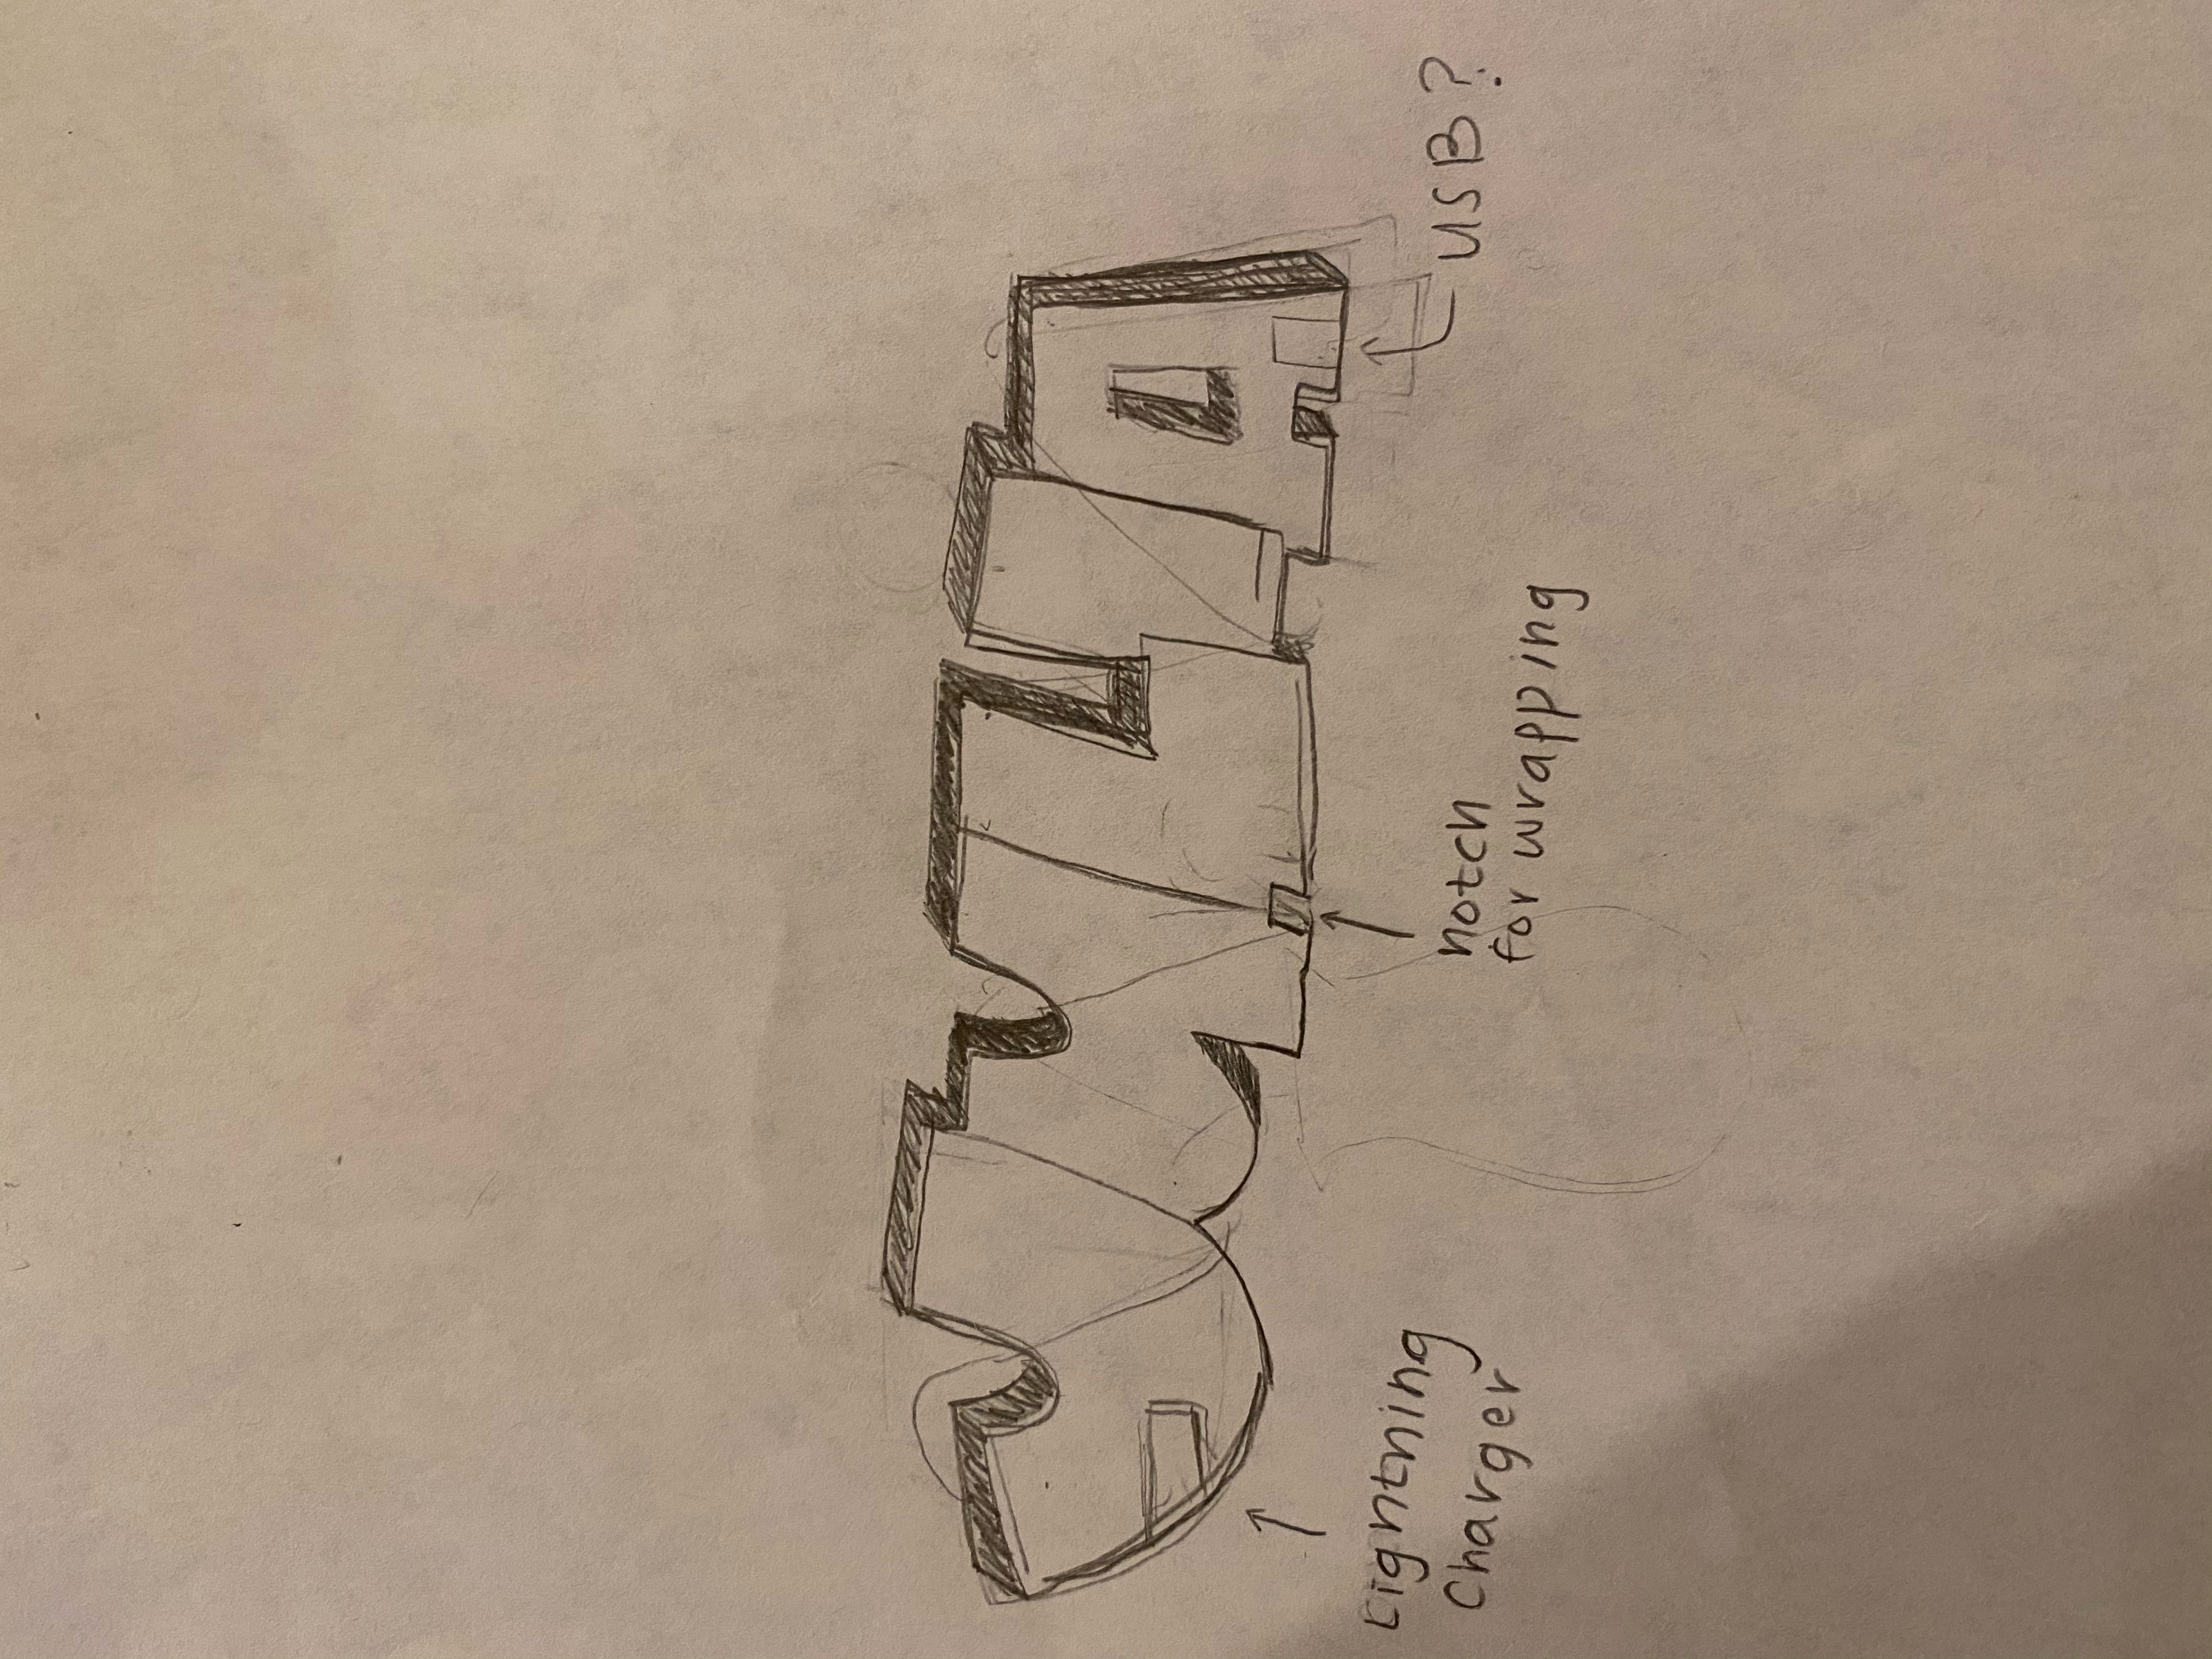 JULIA
Lightning
Charger
notch
for wrapping
USB?